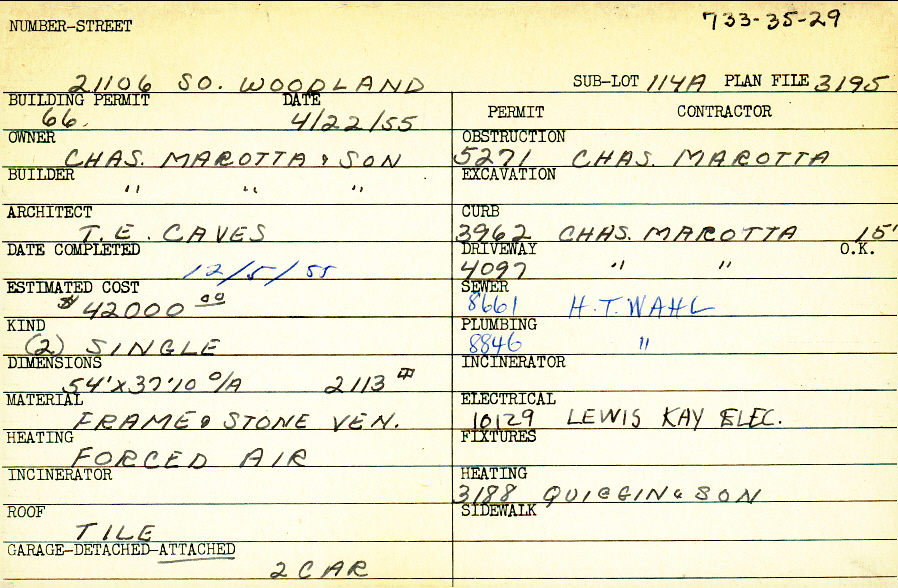 733-35-29
NUMBER-STREET
21106 SO. WOODLAND
SUB-LOT 114A PLAN FILE 3195
BUILDING PERMIT DATE
66. 4/22/55
PERMIT CONTRACTOR
OWNER
CHAS. MAROTTA & SON
OBSTRUCTION
5271 CHAS. MAROTTA
BUILDER
" " "
EXCAVATION
ARCHITECT
T.E. CAVES
CURB
3962 CHAS. MAROTTA 15'
DATE COMPLETED
12/5/55
DRIVEWAY O.K.
4097 " "
ESTIMATED COST
$42000 00
SEWER
8661 H.T. WAHL
KIND
(2) SINGLE
PLUMBING
8846 "
DIMENSIONS
54'x37'10 O/A 2113
INCINERATOR
MATERIAL
FRAME & STONE VEN.
ELECTRICAL
10129 LEWIS KAY ELEC.
HEATING
FORCED AIR
FIXTURES
INCINERATOR
HEATING
3188 QUIGGIN & SON
ROOF
TILE
SIDEWALK
GARAGE-DETACHED-ATTACHED
2 CAR